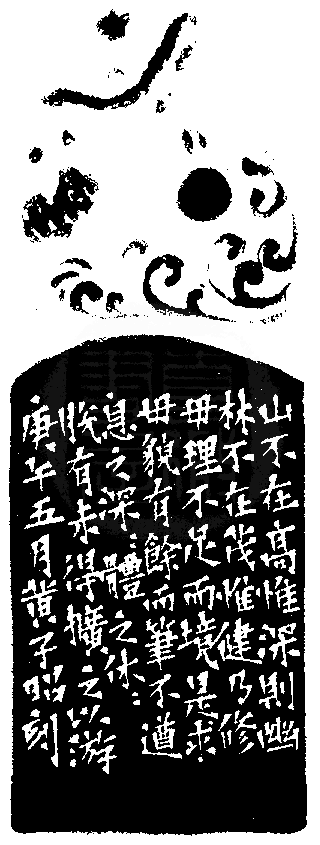 山不在高惟深則幽
林不在茂惟健乃修
毋理不足而境是求
毋貌有餘而筆不遒
息之深〻體之休〻
脱有未得擴之以游
庚午五月黃子昭刻